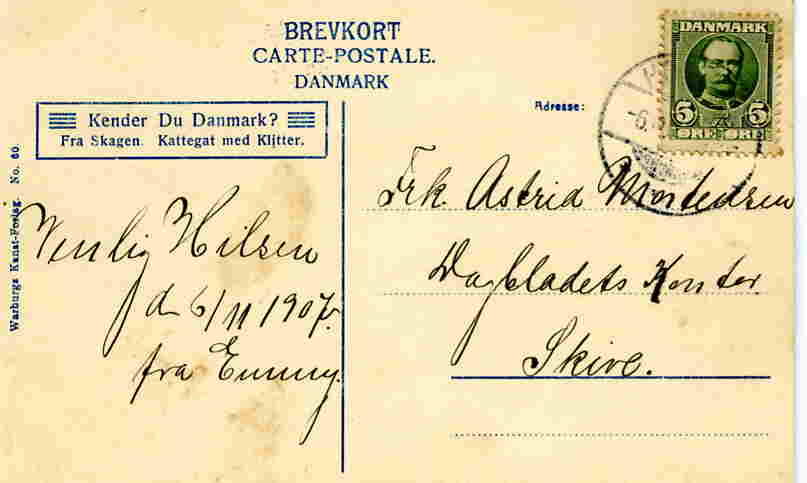 BREVKORT
CARTE-POSTALE.
DANMARK
Kender Du Danmark?
Fra Skagen. Kattegat med Klitter.
Warburgs Kunst-Forlag. No. 60.
Venlig Hilsen
d. 6/11 1907.
fra Emmy.
DANMARK
5 5
ØRE ØRE
Adresse:
Frk. Astrid Mortensen
Dagbladets Kontor
Skive.